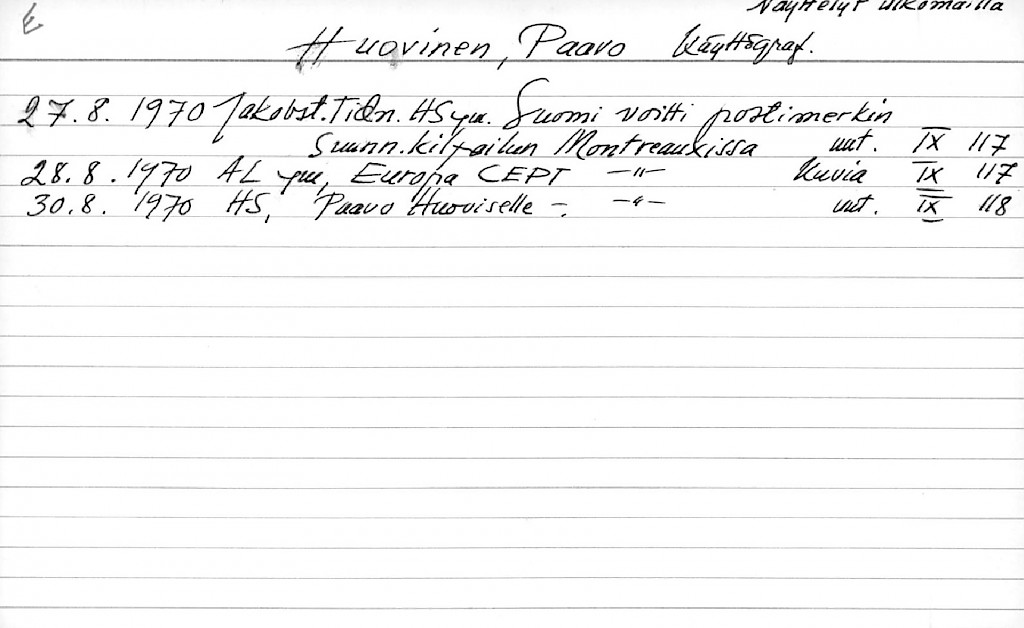 E
Näyttelyt ulkomailla
Huovinen, Paavo Käyttögraf.
27.8. 1970 Jakobst.Tidn. HS ym. Suomi voitti postimerkin
Suunn.kilpailun Montreauxissa uut. IX 117
28.8. 1970 AL ym, Europa CEPT —"— Kuvia IX 117
30.8. 1970 HS, Paavo Huoviselle —. —"— uut. IX 118